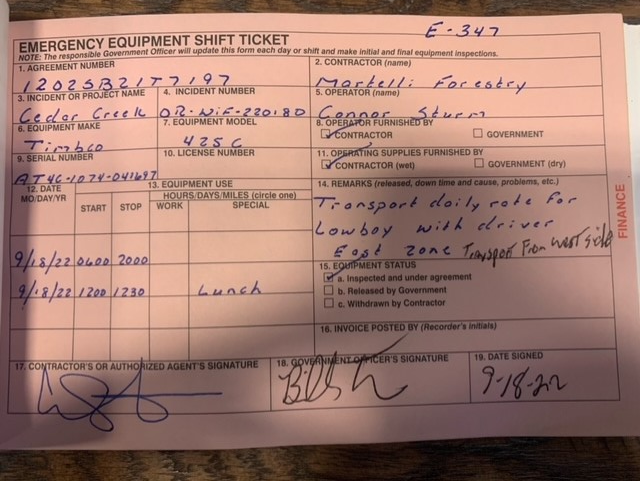 E-347
EMERGENCY EQUIPMENT SHIFT TICKET
NOTE: The responsible Government Officer will update this form each day or shift and make initial and final equipment inspections.
1. AGREEMENT NUMBER
1202SB21T7197
2. CONTRACTOR (name)
Martelli Forestry
3. INCIDENT OR PROJECT NAME
Cedar Creek
4. INCIDENT NUMBER
OR-WIF-220180
5. OPERATOR (name)
Connor Sturm
6. EQUIPMENT MAKE
Timbco
7. EQUIPMENT MODEL
425C
8. OPERATOR FURNISHED BY
CONTRACTOR
GOVERNMENT
9. SERIAL NUMBER
AT4C-1074-041697
10. LICENSE NUMBER
11. OPERATING SUPPLIES FURNISHED BY
CONTRACTOR (wet)
GOVERNMENT (dry)
12. DATE
MO/DAY/YR
13. EQUIPMENT USE
HOURS/DAYS/MILES (circle one)
START STOP WORK SPECIAL
9/18/22 0600 2000
9/18/22 1200 1230 Lunch
14. REMARKS (released, down time and cause, problems, etc.)
Transport daily rate for
Lowboy with driver
East zone Transport From west side
15. EQUIPMENT STATUS
a. Inspected and under agreement
b. Released by Government
c. Withdrawn by Contractor
16. INVOICE POSTED BY (Recorder's initials)
17. CONTRACTOR'S OR AUTHORIZED AGENT'S SIGNATURE
18. GOVERNMENT OFFICER'S SIGNATURE
19. DATE SIGNED
9-18-22
FINANCE